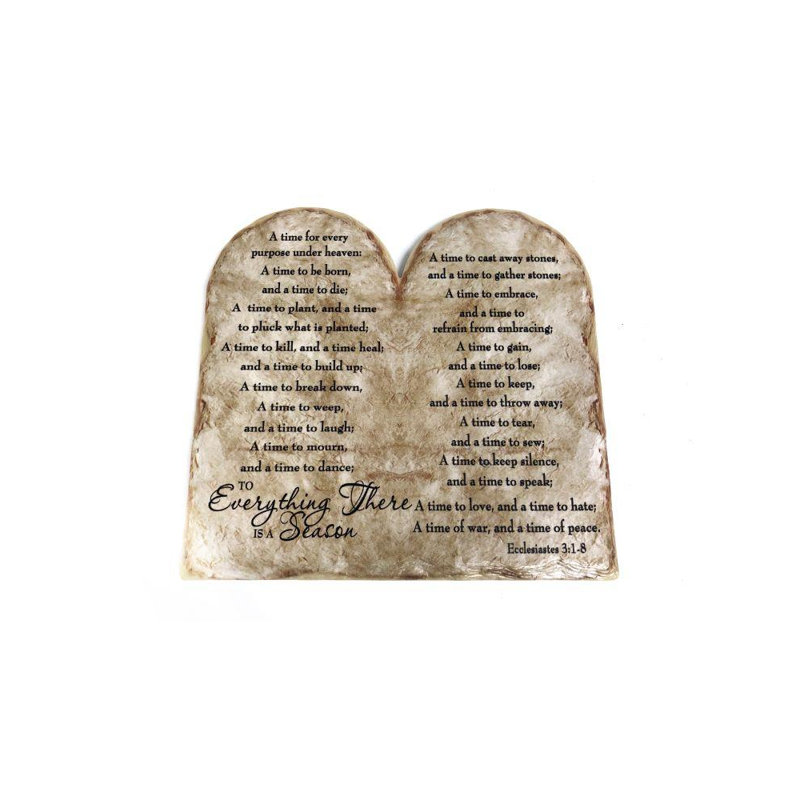 A time for every
purpose under heaven:
A time to be born,
and a time to die;
A time to plant, and a time
to pluck what is planted;
A time to kill, and a time heal;
and a time to build up;
A time to break down,
A time to weep,
and a time to laugh;
A time to mourn,
and a time to dance;
TO
Everything There
IS A Season
A time to cast away stones,
and a time to gather stones;
A time to embrace,
and a time to
refrain from embracing;
A time to gain,
and a time to lose;
A time to keep,
and a time to throw away;
A time to tear,
and a time to sew;
A time to keep silence,
and a time to speak;
A time to love, and a time to hate;
A time of war, and a time of peace.
Ecclesiastes 3:1-8